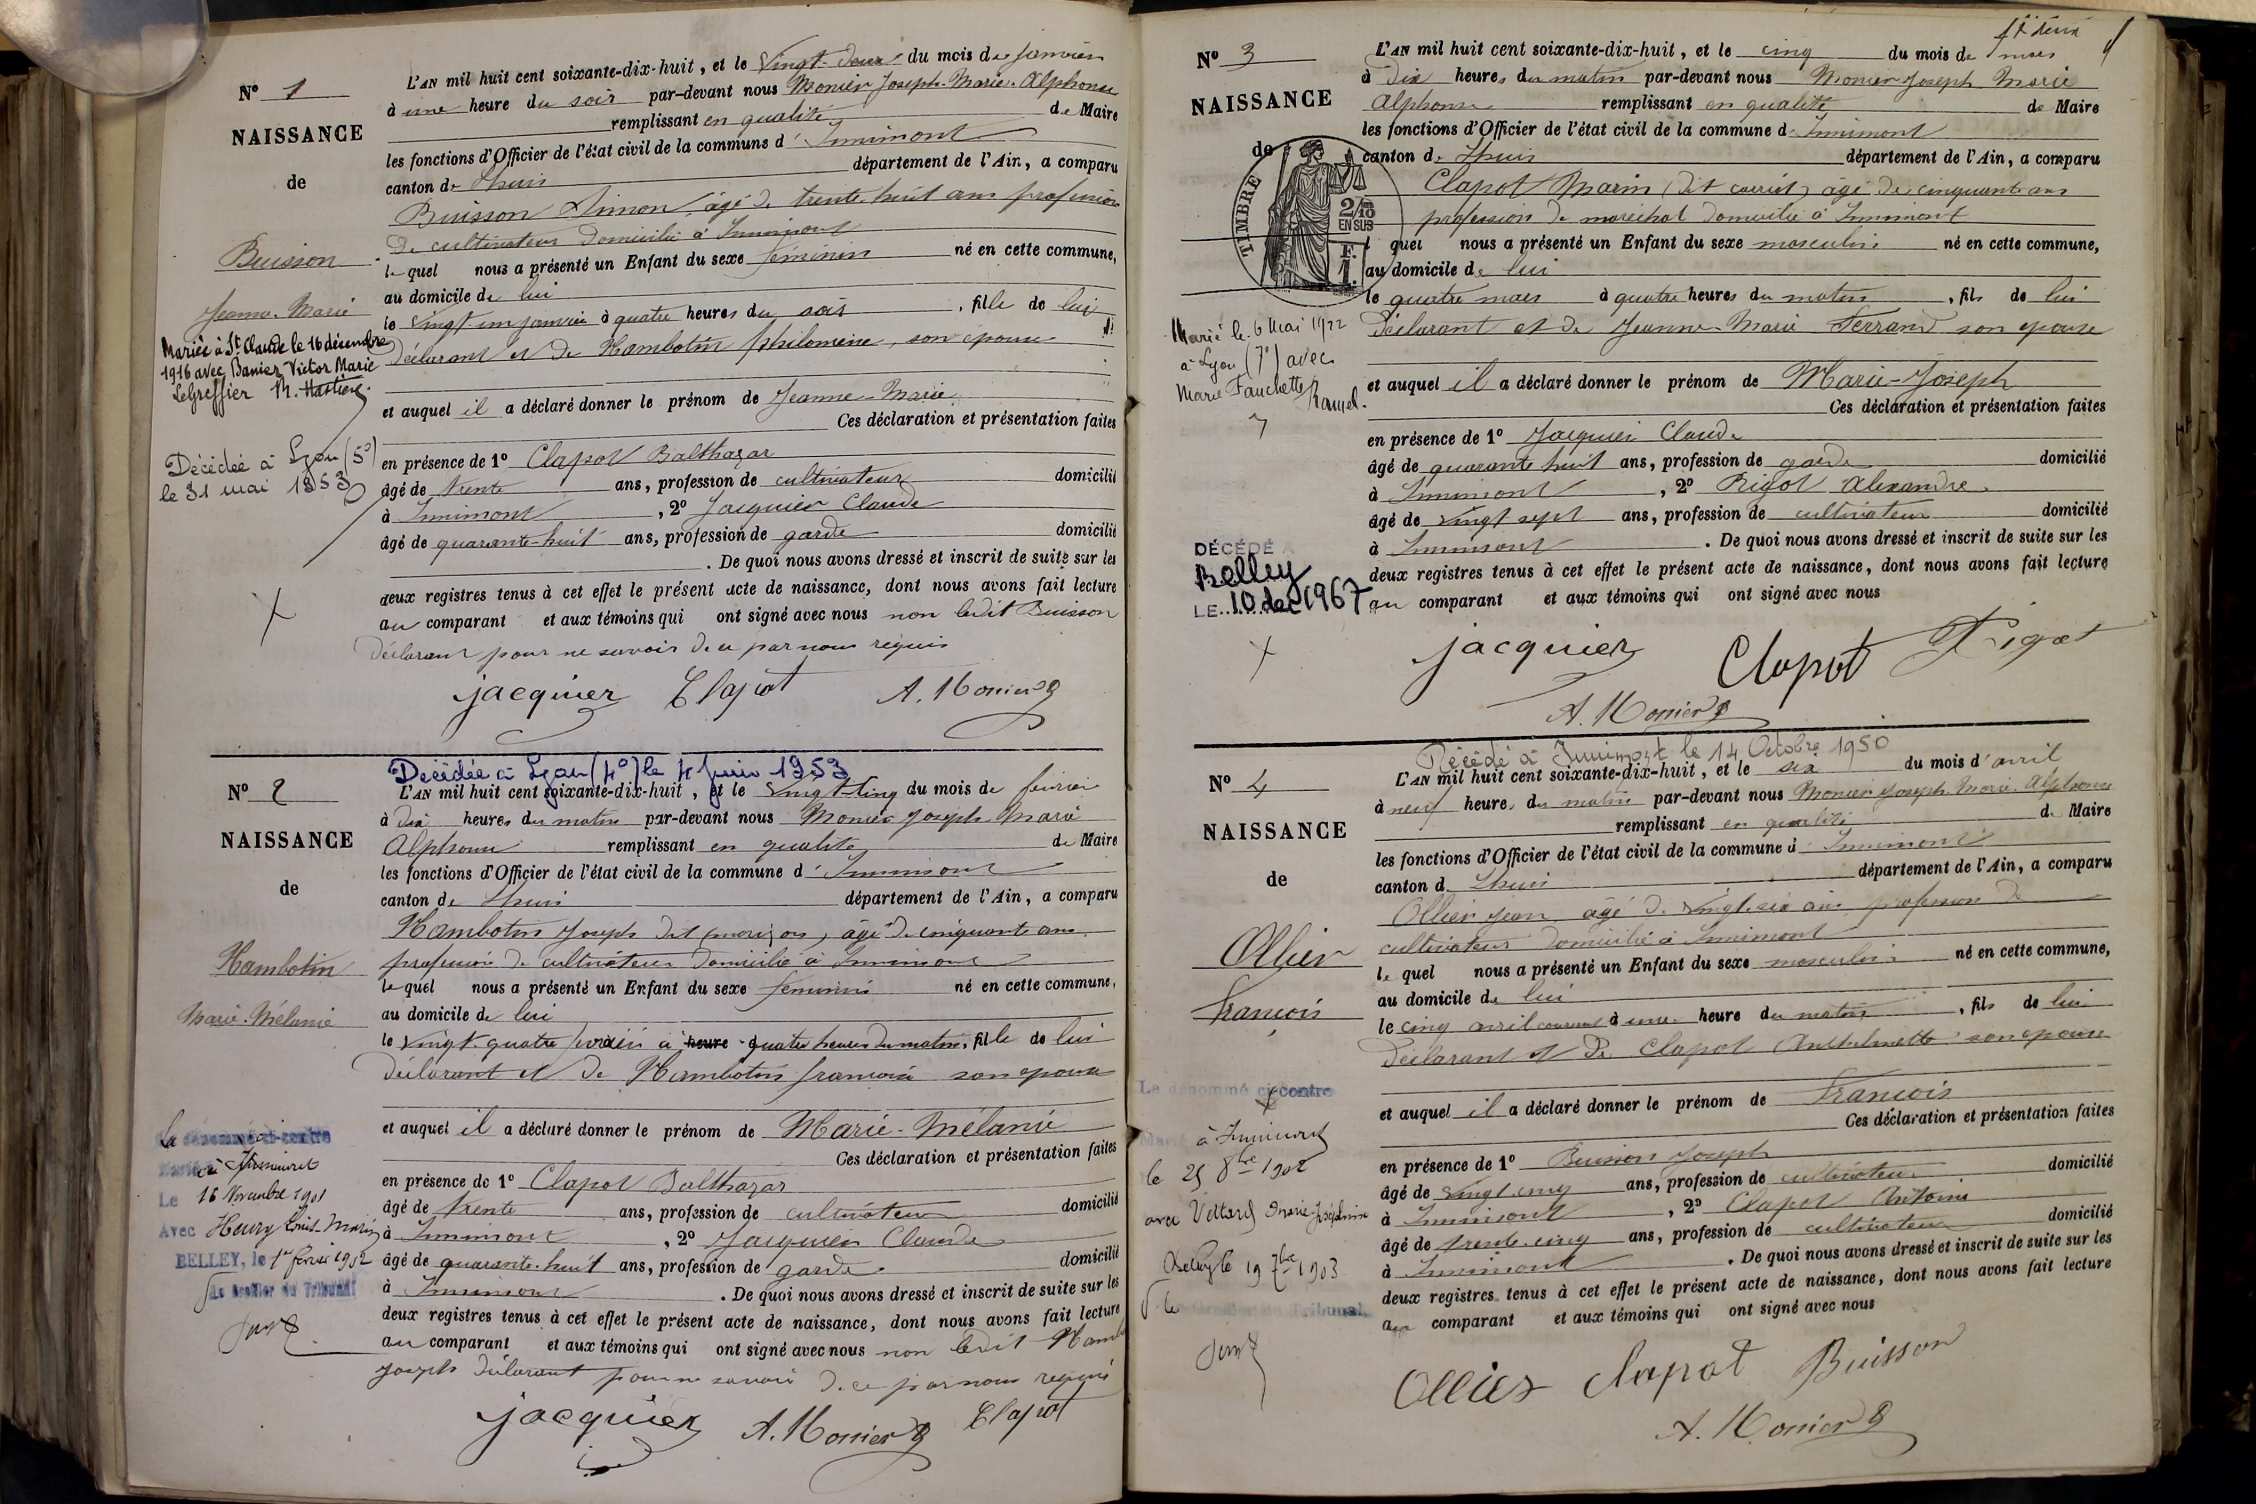 Nº 1
NAISSANCE
de
Buisson
Jeanne-Marie
Mariée à St Claude le 16 décembre
1916 avec Banier Victor Marie
Le Greffier
Décédée à Lyon (5e)
le 31 mai 1953
L'AN mil huit cent soixante-dix-huit, et le vingt-deux du mois de janvier
à une heure du soir par-devant nous Monier Joseph-Marie-Alphonse
remplissant en qualité de Maire
les fonctions d'Officier de l'état civil de la commune d'Innimont
canton de Lhuis département de l'Ain, a comparu
Buisson Simon, âgé de trente-huit ans profession
de cultivateur domicilié à Innimont
lequel nous a présenté un Enfant du sexe féminin né en cette commune,
au domicile de lui
le vingt-un janvier à quatre heures du soir, fille de lui
déclarant et de Hambotin philomène, son épouse
et auquel il a déclaré donner le prénom de Jeanne-Marie
Ces déclaration et présentation faites
en présence de 1º Clapot Balthazar
âgé de trente ans, profession de cultivateur domicilié
à Innimont, 2º Jacquier Claude
âgé de quarante-huit ans, profession de garde domicilié
. De quoi nous avons dressé et inscrit de suite sur les
deux registres tenus à cet effet le présent acte de naissance, dont nous avons fait lecture
au comparant et aux témoins qui ont signé avec nous non ledit Buisson
déclarant pour ne savoir de ce par nous requis
jacquier Clapot A. Monier
Nº 2
NAISSANCE
de
Hambotin
Marie-Mélanie
La dénommé ci-contre
à Innimont
Le 16 Novembre 1901
Avec Henry Louis-Marin
BELLEY, le 1er février 1902
Le Greffier du Tribunal
Décédée à Lyon (4e) le 4 juin 1953
L'AN mil huit cent soixante-dix-huit, et le vingt-cinq du mois de février
à dix heures du matin par-devant nous Monier Joseph Marie
Alphonse remplissant en qualité de Maire
les fonctions d'Officier de l'état civil de la commune d'Innimont
canton de Lhuis département de l'Ain, a comparu
Hambotin Joseph dit âgé de cinquante ans
profession de cultivateur domicilié à Innimont
lequel nous a présenté un Enfant du sexe féminin né en cette commune,
au domicile de lui
le vingt-quatre février à heure quatre heures du matin, fille de lui
déclarant et de Hambotin françoise son épouse
et auquel il a déclaré donner le prénom de Marie-Mélanie
Ces déclaration et présentation faites
en présence de 1º Clapot Balthazar
âgé de trente ans, profession de cultivateur domicilié
à Innimont, 2º Jacquier Claude
âgé de quarante-huit ans, profession de garde domicilié
à Innimont. De quoi nous avons dressé et inscrit de suite sur les
deux registres tenus à cet effet le présent acte de naissance, dont nous avons fait lecture
au comparant et aux témoins qui ont signé avec nous non ledit Hamb
joseph déclarant pour ne savoir de ce par nous requis
jacquier A. Monier Clapot
Nº 3
NAISSANCE
de
TIMBRE
2/10
EN SUS
F.
1.
Marié le 6 Mai 1922
à Lyon (7e) avec
Marie Fanchette Ramel.
DÉCÉDÉ A
Belley
LE 10 dec 1967
L'AN mil huit cent soixante-dix-huit, et le cinq du mois de mars
à dix heures du matin par-devant nous Monier Joseph Marie
Alphonse remplissant en qualité de Maire
les fonctions d'Officier de l'état civil de la commune d'Innimont
canton de Lhuis département de l'Ain, a comparu
Clapot Marin (dit carrit) âgé de cinquante ans
profession de maréchal domicilié à Innimont
quel nous a présenté un Enfant du sexe masculin né en cette commune,
au domicile de lui
le quatre mars à quatre heures du matin, fils de lui
déclarant et de Jeanne-Marie Ferrand son épouse
et auquel il a déclaré donner le prénom de Marie-Joseph
Ces déclaration et présentation faites
en présence de 1º Jacquier Claude
âgé de quarante huit ans, profession de garde domicilié
à Innimont, 2º Rigot Alexandre
âgé de vingt sept ans, profession de cultivateur domicilié
à Innimont. De quoi nous avons dressé et inscrit de suite sur les
deux registres tenus à cet effet le présent acte de naissance, dont nous avons fait lecture
au comparant et aux témoins qui ont signé avec nous
jacquier Clapot Rigot
A. Monier
Nº 4
NAISSANCE
de
Ollier
François
Le dénommé ci-contre
Marié
à Innimont
le 25 8bre 1902
avec Vettard Marie-Joséphine
Belley le 19 7bre 1903
le Greffier du Tribunal
Décédé à Innimont le 14 Octobre 1950
L'AN mil huit cent soixante-dix-huit, et le six du mois d'avril
à neuf heures du matin par-devant nous Monier Joseph Marie Alphonse
remplissant en qualité de Maire
les fonctions d'Officier de l'état civil de la commune d'Innimont
canton d Lhuis département de l'Ain, a comparu
Ollier Jean âgé de vingt-six ans profession de
cultivateur domicilié à Innimont
lequel nous a présenté un Enfant du sexe masculin né en cette commune,
au domicile de lui
le cinq avril courant à une heure du matin, fils de lui
déclarant et de Clapot Anthelmette son épouse
et auquel il a déclaré donner le prénom de François
Ces déclaration et présentation faites
en présence de 1º Buisson Joseph
âgé de vingt cinq ans, profession de cultivateur domicilié
à Innimont, 2º Clapot Antoine
âgé de trente-cinq ans, profession de cultivateur domicilié
à Innimont. De quoi nous avons dressé et inscrit de suite sur les
deux registres tenus à cet effet le présent acte de naissance, dont nous avons fait lecture
au comparant et aux témoins qui ont signé avec nous
Ollier Clapot Buisson
A. Monier